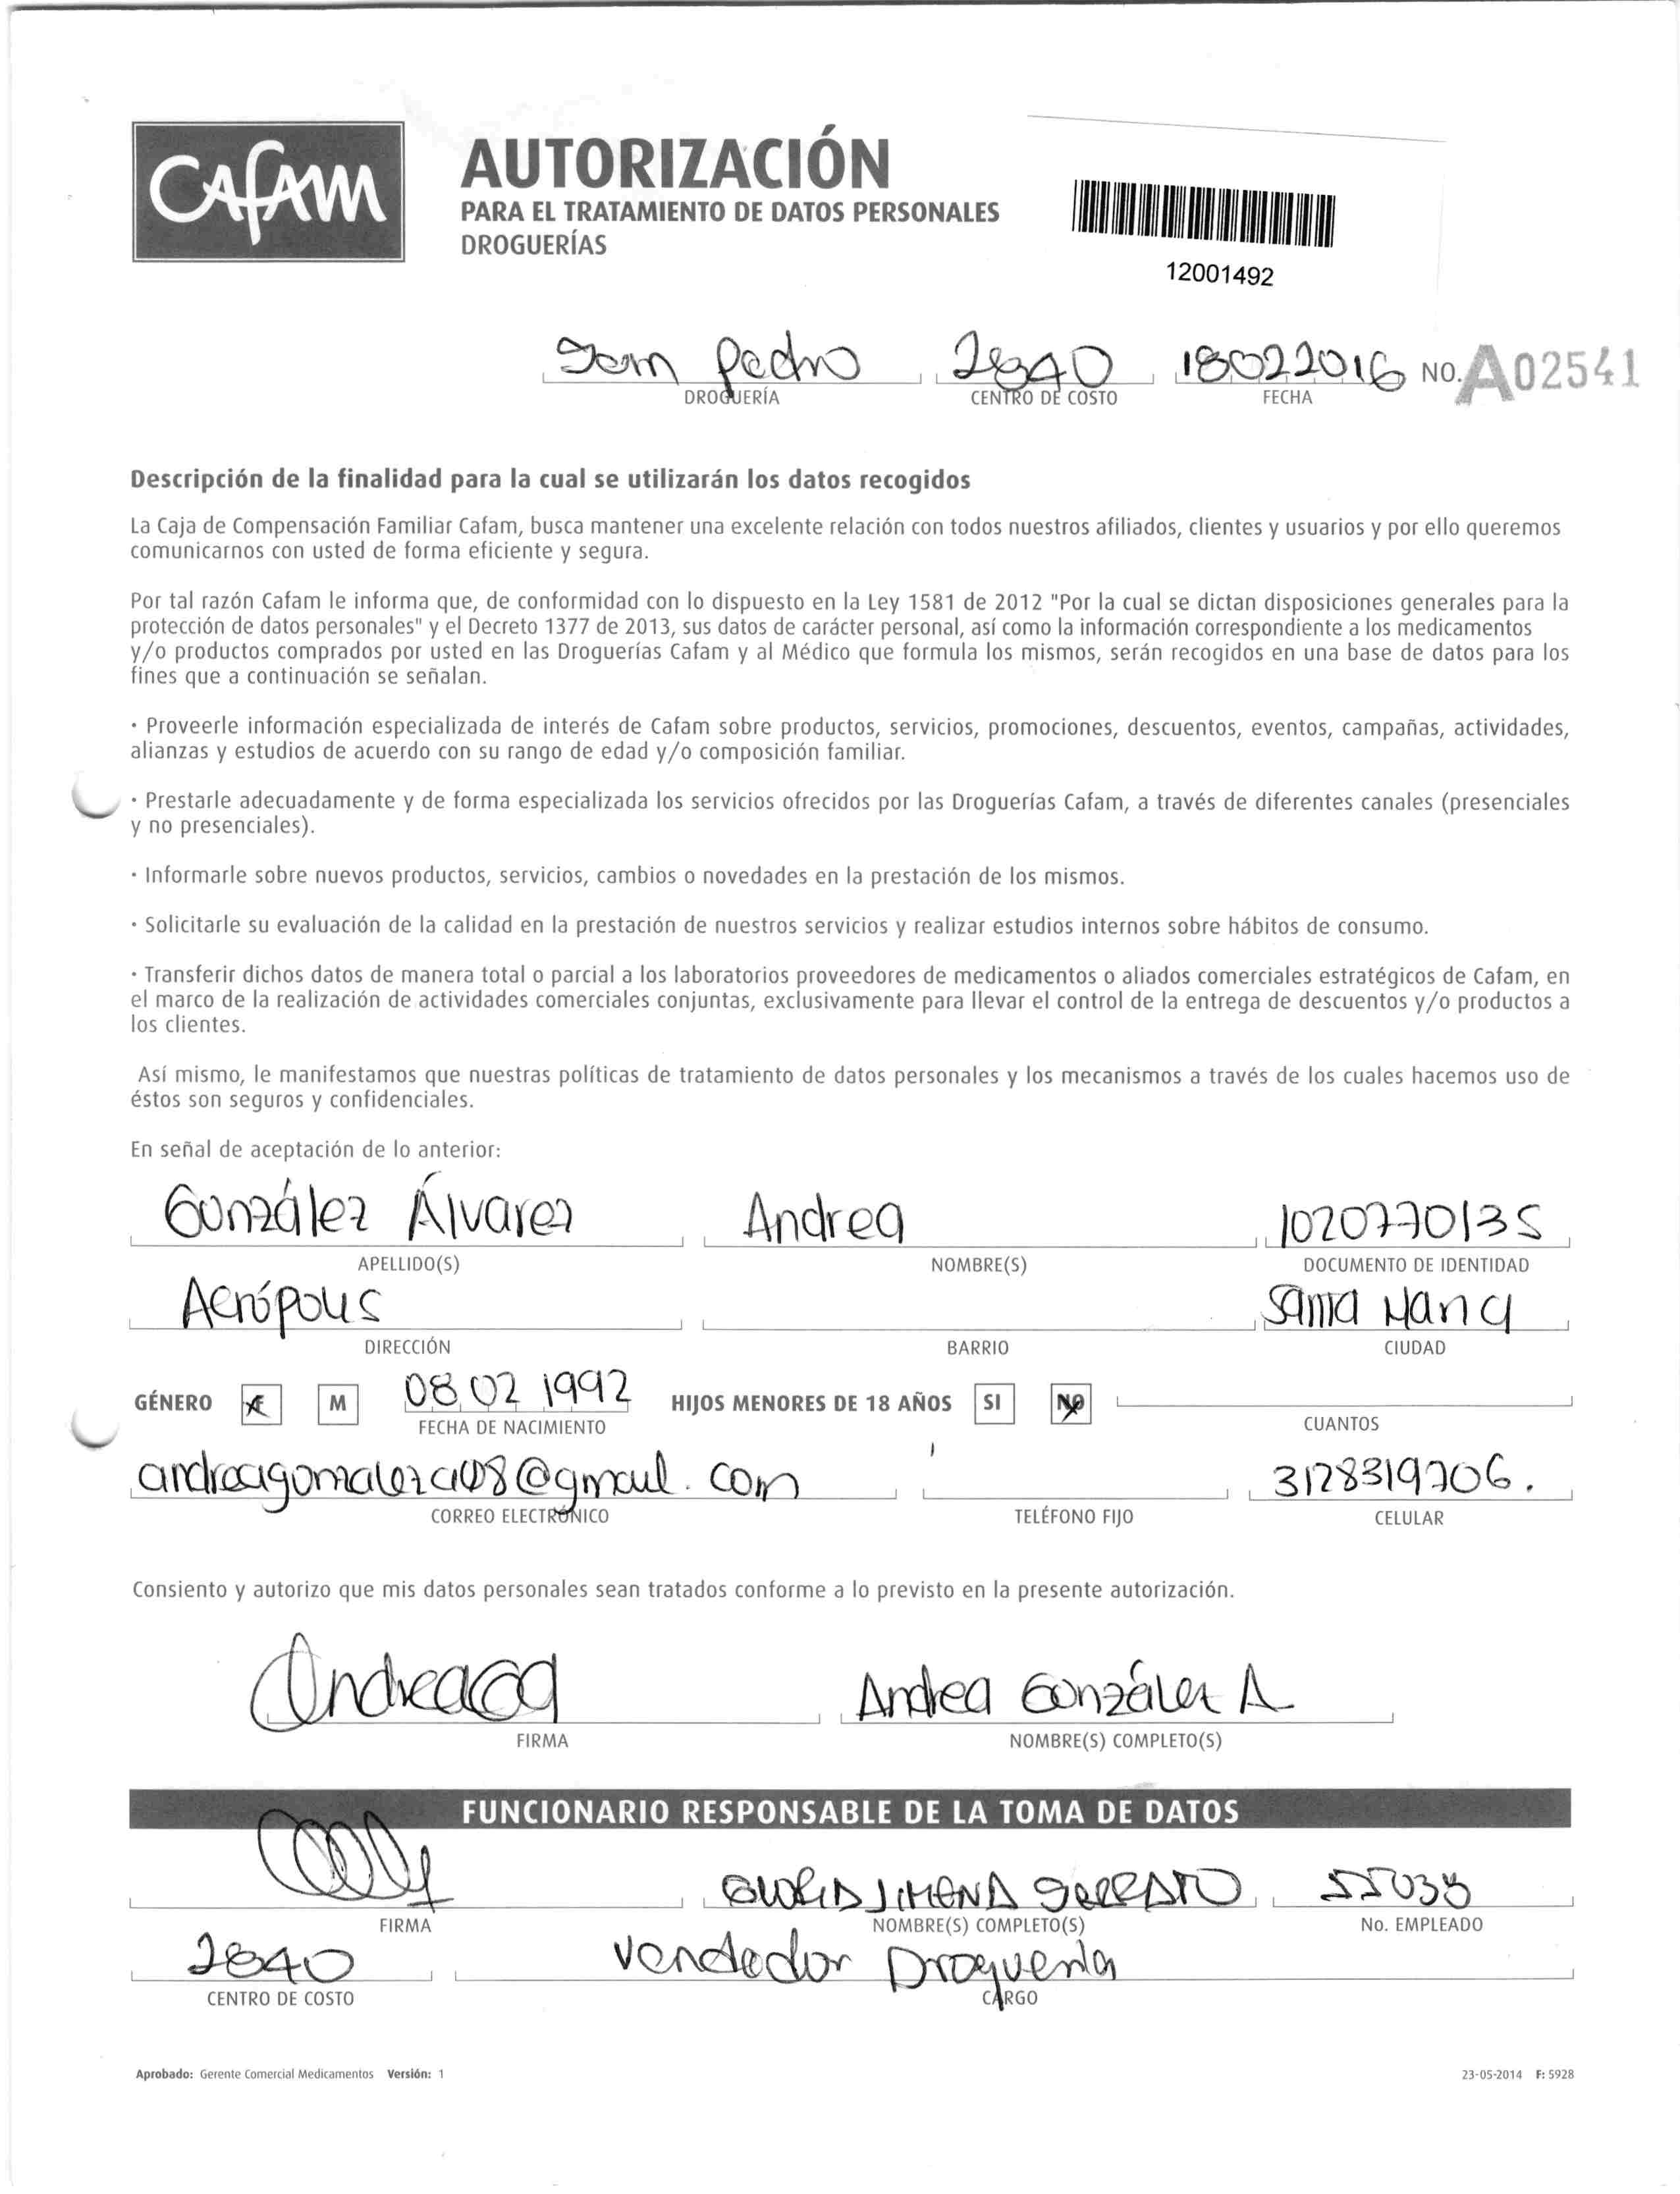 Cafam
AUTORIZACIÓN
PARA EL TRATAMIENTO DE DATOS PERSONALES
DROGUERÍAS
12001492
San Pedro 2840 18022016 NO. A02541
DROGUERÍA CENTRO DE COSTO FECHA
Descripción de la finalidad para la cual se utilizarán los datos recogidos
La Caja de Compensación Familiar Cafam, busca mantener una excelente relación con todos nuestros afiliados, clientes y usuarios y por ello queremos
comunicarnos con usted de forma eficiente y segura.
Por tal razón Cafam le informa que, de conformidad con lo dispuesto en la Ley 1581 de 2012 "Por la cual se dictan disposiciones generales para la
protección de datos personales" y el Decreto 1377 de 2013, sus datos de carácter personal, así como la información correspondiente a los medicamentos
y/o productos comprados por usted en las Droguerías Cafam y al Médico que formula los mismos, serán recogidos en una base de datos para los
fines que a continuación se señalan.
· Proveerle información especializada de interés de Cafam sobre productos, servicios, promociones, descuentos, eventos, campañas, actividades,
alianzas y estudios de acuerdo con su rango de edad y/o composición familiar.
· Prestarle adecuadamente y de forma especializada los servicios ofrecidos por las Droguerías Cafam, a través de diferentes canales (presenciales
y no presenciales).
· Informarle sobre nuevos productos, servicios, cambios o novedades en la prestación de los mismos.
· Solicitarle su evaluación de la calidad en la prestación de nuestros servicios y realizar estudios internos sobre hábitos de consumo.
· Transferir dichos datos de manera total o parcial a los laboratorios proveedores de medicamentos o aliados comerciales estratégicos de Cafam, en
el marco de la realización de actividades comerciales conjuntas, exclusivamente para llevar el control de la entrega de descuentos y/o productos a
los clientes.
Así mismo, le manifestamos que nuestras políticas de tratamiento de datos personales y los mecanismos a través de los cuales hacemos uso de
éstos son seguros y confidenciales.
En señal de aceptación de lo anterior:
González Álvarez Andrea 1020770135
APELLIDO(S) NOMBRE(S) DOCUMENTO DE IDENTIDAD
Acrópolis Santa Marta
DIRECCIÓN BARRIO CIUDAD
GÉNERO F M 08 02 1992 HIJOS MENORES DE 18 AÑOS SI NO
FECHA DE NACIMIENTO CUANTOS
andreagonzaleza08@gmail.com 3178319706.
CORREO ELECTRÓNICO TELÉFONO FIJO CELULAR
Consiento y autorizo que mis datos personales sean tratados conforme a lo previsto en la presente autorización.
Andrea González A
FIRMA NOMBRE(S) COMPLETO(S)
FUNCIONARIO RESPONSABLE DE LA TOMA DE DATOS
JIMENA SERRATO 55038
FIRMA NOMBRE(S) COMPLETO(S) No. EMPLEADO
2840 Vendedor Drogueria
CENTRO DE COSTO CARGO
Aprobado: Gerente Comercial Medicamentos Versión: 1 23-05-2014 F: 5928